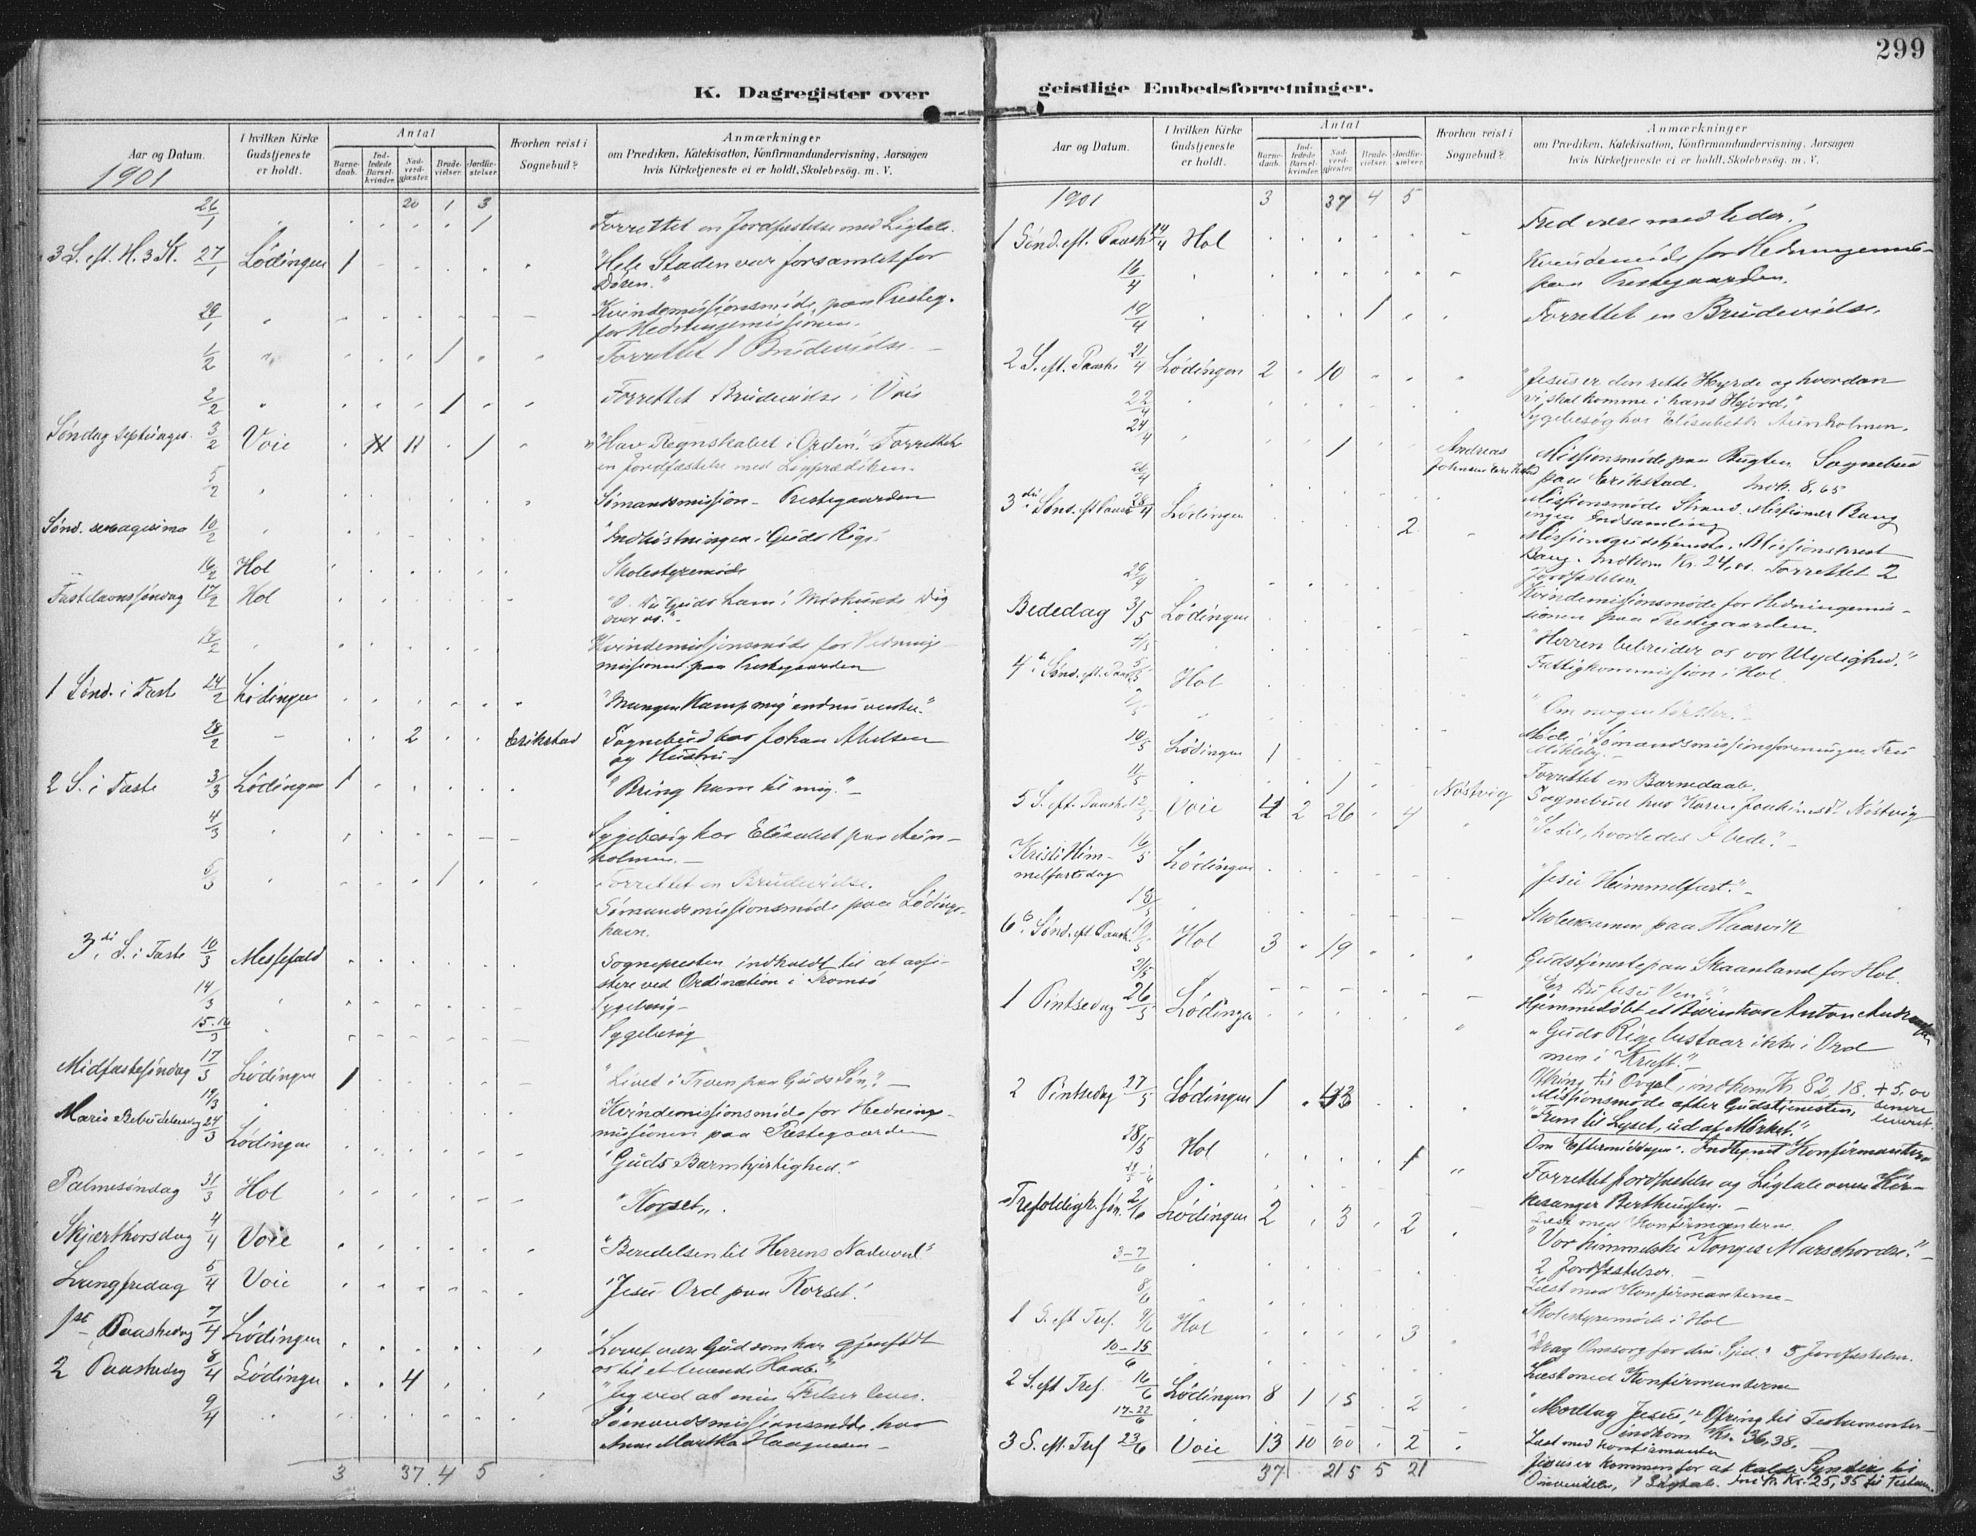 299
K. Dagregister over
geistlige Embedsforretninger.
Aar og Datum.
1901
I hvilken Kirke Gudstjeneste er holdt.
Antal
Barne-daab.
Ind-ledede Barsel-kvinder.
Nad-verd-gjæster.
Brude-vielser.
Jordfæ-stelser.
Hvorhen reist i Sognebud?
Anmærkninger
om Prædiken, Katekisation, Konfirmandundervisning, Aarsagen
hvis Kirketjeneste ei er holdt, Skolebesøg. m. V.
20 1 3
26/1 1 Forrettet en Jordfæstelse med Ligtale.
3 S. eft. H. 3 K. 27/1 Lødingen 1 "Hele Staden var forsamlet for
Døren."
29/1 Kvindemissionsmøde paa Presteg.
for Hedningemissionen.
1/2 1 Forrettet 1 Brudevielse.
2/2 1 Forrettet Brudevielse i Voie
Søndag Septuages. 3/2 Voie 11 1 "Hav Regnskabet i Orden." Forrettet
en Jordfæstelse med Ligprædiken.
5/2 Sømandsmission - Prestegaarden
Sønd. sexagesima 10/2 "Indhøstningen i Guds Rige
16/2 Hol Skolestyremøde
Fastelavnssøndag 17/2 Hol "O Du Guds Lam! Miskunde Dig
over os."
19/2 Kvindemissionsmøde for Hednings-
missionen paa Prestegaarden
1 Sønd. i Faste 24/2 Lødingen "Mangen Kamp mig endnu venter."
28/2 2 Erikstad Sognebud hos Johan Abelsen
og Hustru
2 S. i Faste 3/3 Lødingen 1 "Bring ham til mig."
4/3 Sygebesøg hos Elisabet paa Aun-
holmen.
5/3 1 Forrettet en Brudevielse.
Sømandsmissionsmøde paa Lødings-
havn.
3die S. i Faste 10/3 Messefald Sognepresten indkaldt til at assi-
stere ved Ordination i Tromsø
14/3 Sygebesøg
15-16/3 Sygebesøg
Midfastesøndag 17/3 Lødingen 1 "Livet i Troen paa Guds Søn."
19/3 Kvindemissionsmøde for Hednings-
missionen paa Prestegaarden
Mariæ Bebudelsesdag 24/3 Lødingen "Guds Barmhjertighed."
Palmesøndag 31/3 Hol "Korset".
Skjærthorsdag 4/4 Voie "Beredelsen til Herrens Nadverd"
Langfredag 5/4 Voie "Jesu Ord paa Korset."
1ste Paaskedag 7/4 Lødingen "Lovet være Gud som har gjenfødt
os til et levende Haab."
2 Paaskedag 8/4 Lødingen 4 "Jeg ved at min Frelser lever.
9/4 Sømandsmissionsmøde hos
Anne Martha Haagensen
3 37 4 5
Aar og Datum.
I hvilken Kirke Gudstjeneste er holdt.
Antal
Barne-daab.
Ind-ledede Barsel-kvinder.
Nad-verd-gjæster.
Brude-vielser.
Jordfæ-stelser.
Hvorhen reist i Sognebud?
Anmærkninger
om Prædiken, Katekisation, Konfirmandundervisning, Aarsagen
hvis Kirketjeneste ei er holdt, Skolebesøg. m. V.
1901 3 37 4 5
1 Sønd. eft. Paaske 14/4 Hol Fred være med Eder!
16/4 Kvindemøde for Hedningemis-
paa Prestegaarden.
19/4 1 Forrettet en Brudevielse.
2 S. eft. Paaske 21/4 Lødingen 2 10 "Jesus er den rette Hyrde og hvordan
vi skal komme i hans Hjord."
22/4 Sygebesøg hos Elisabeth Aunholmen.
24/4 1 Andreas Johnsen Erikstad Missionsmøde paa Bugten. Sognebud
paa Erikstad. Indk. 8,65
26/4 Missionsmøde Strand. Missionær Bang
ingen Indsamling
3die Sønd. eft Paaske 28/4 Lødingen 2 Missionsgudstjeneste. Missionsprest
Bang. Indkom Kr. 24,01. Forrettet 2
Jordfæstelser.
29/4 Kvindemissionsmøde for Hedningemis-
sionen paa Prestegaarden.
Bededag 3/5 Lødingen "Herren bebreider os vor Ulydighed."
4/5 Fattigkommission i Hol
4de Sønd. eft. Paaske 5/5 Hol "Om nogen tørster."
7/5 Møde i Sømandsmissionsforeningen Fru
10/5 Lødingen 1 Forrettet en Barnedaab.
11/5 1 Nøstvig Sognebud hos Karen Joakimsd. Nøstvig
5 S. eft. Paaske 12/5 Voie 4 2 26 4 "Se til, hvorledes I bede."
Kristi Him-
melfartsdag 16/5 Lødingen "Jesu Himmelfart."
18/5 Skoleexamen paa Haarvik
6te Sønd. eft Paaske 19/5 Hol 3 19 Gudstjeneste paa Skaanland for Hol.
"Er Du Jesu Ven?"
21/5 Hjemmedøbt et Barn hos Anton Andreassen
1 Pintsedag 26/5 Lødingen "Guds Rige bestaar ikke i Ord
men i Kraft."
Ofring til Orgel, indkom Kr 82,18. + 5,00
senere
leveret.
2 Pintsedag 27/5 Lødingen 1 Missionsmøde efter Gudstjenesten,
"Frem til Lyset, ud af Mørket."
28/5 Hol 1 Om Eftermiddagen. Indtegnet Konfirmanter
Forrettet Jordfæstelse og Ligtale over Kir-
kesanger Bertheussen.
Læst med Konfirmanterne.
Trefoldigh. søn. 2/6 Lødingen 2 3 2 "Vor himmelske Konges Marschordre."
2 Jordfæstelser.
3-7/6 Læst med Konfirmanterne
8/6 Skolestyremøde i Hol
1 S. eft Tref. 9/6 Hol 3 "Drag Omsorg for din Sjæl." 3 Jordfæstelser.
10-15/6 Læst med Konfirmanterne
2 S. eft Tref. 16/6 Lødingen 8 1 15 2 "Modtag Jesus." Ofring til Testamenter
indkom Kr. 36,38.
17-22/6 Læst med Konfirmanter
3 S. eft. Tref 23/6 Voie 13 10 60 2 Jesus er kommen for at kalde Syndere til
Omvendelse, 1 Ligtale. Indk. Kr. 25,35 til Testam.
37 215 5 21